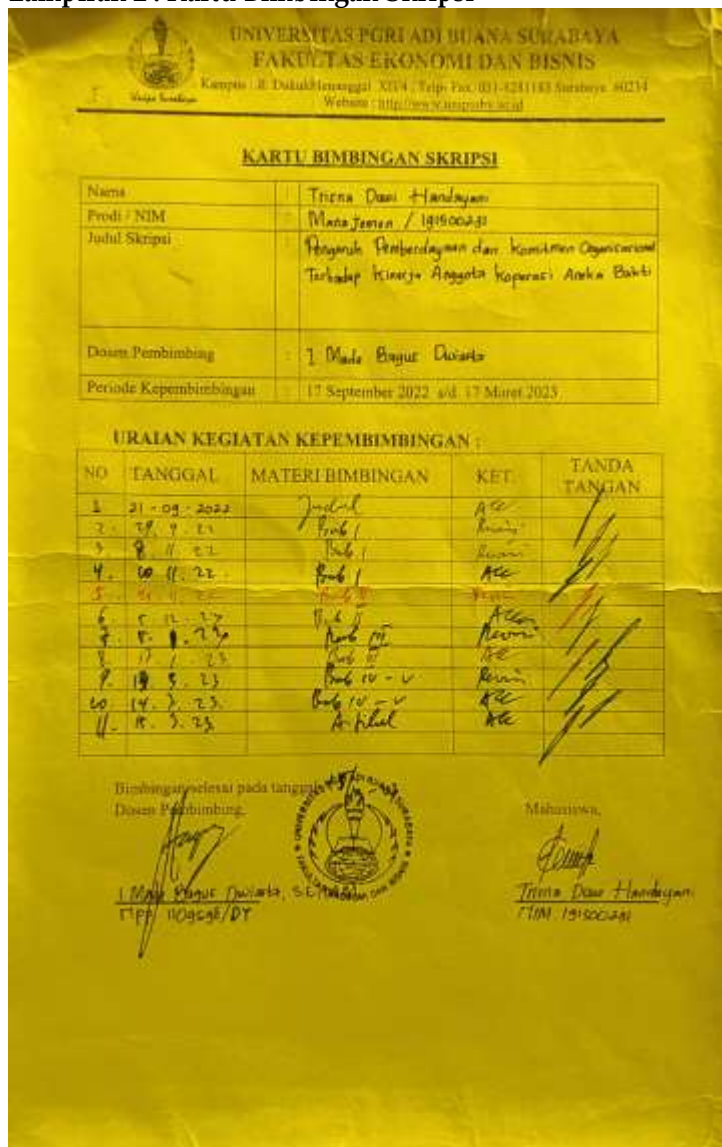 UNIVERSITAS PGRI ADI BUANA SURABAYA
FAKULTAS EKONOMI DAN BISNIS
Website : http://www.unipasby.ac.id
KARTU BIMBINGAN SKRIPSI
Nama : Trisna Dewi Handayani
Prodi / NIM : Manajemen / 191500231
Judul Skripsi : Pengaruh Pemberdayaan dan Komitmen Organisasional
Terhadap Kinerja Anggota Koperasi Aneka Bakti
Dosen Pembimbing : I Made Bagus Dwiarta
Periode Kepembimbingan : 17 September 2022 s/d 17 Maret 2023
URAIAN KEGIATAN KEPEMBIMBINGAN :
NO TANGGAL MATERI BIMBINGAN KET. TANDA TANGAN
1 21 - 09 - 2022 Judul Acc
2. 29. 9. 22 Bab I Revisi
3 8 11 22 Bab I Revisi
4. 10 11. 22 Bab I Acc
5. Bab II Revisi
6 5 12. 22 Bab II Acc
7. Bab III Revisi
8 1 23 Bab III Acc
9. 3. 23 Bab IV - V Revisi
10 14. 3. 23. Bab IV - V Acc
11. 15. 3. 23 Artikel Acc
Bimbingan selesai pada tanggal
Dosen Pembimbing, Mahasiswa,
I Made Bagus Dwiarta, S.E.
NPP Trisna Dewi Handayani
NIM. 191500231